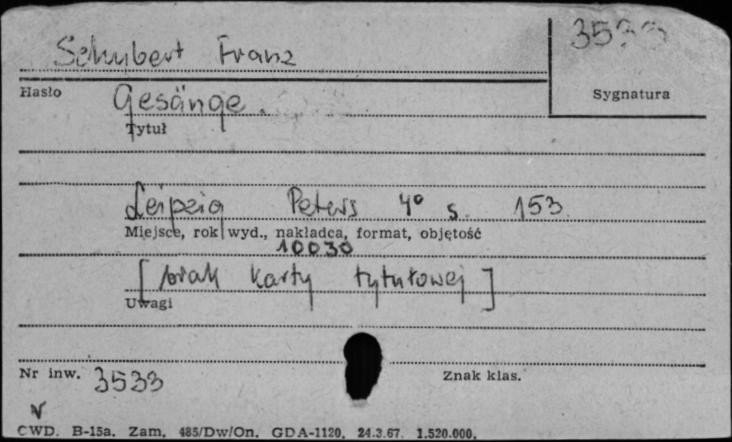 3533
Schubert Franz
Hasło
Sygnatura
Gesänge.
Tytuł
Leipzig Peters 4° s. 153
Miejsce, rok wyd., nakładca, format, objętość
10030
[brak karty tytułowej]
Uwagi
Nr inw. 3533
Znak klas.
CWD. B-15a. Zam. 485/Dw/On. GDA-1120. 24.3.67. 1.520.000.